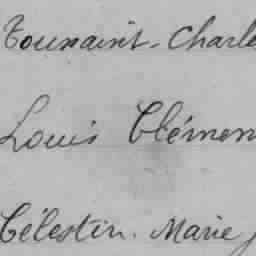 Toussaint. Charle
Louis Clémen
Célestin. Marie J